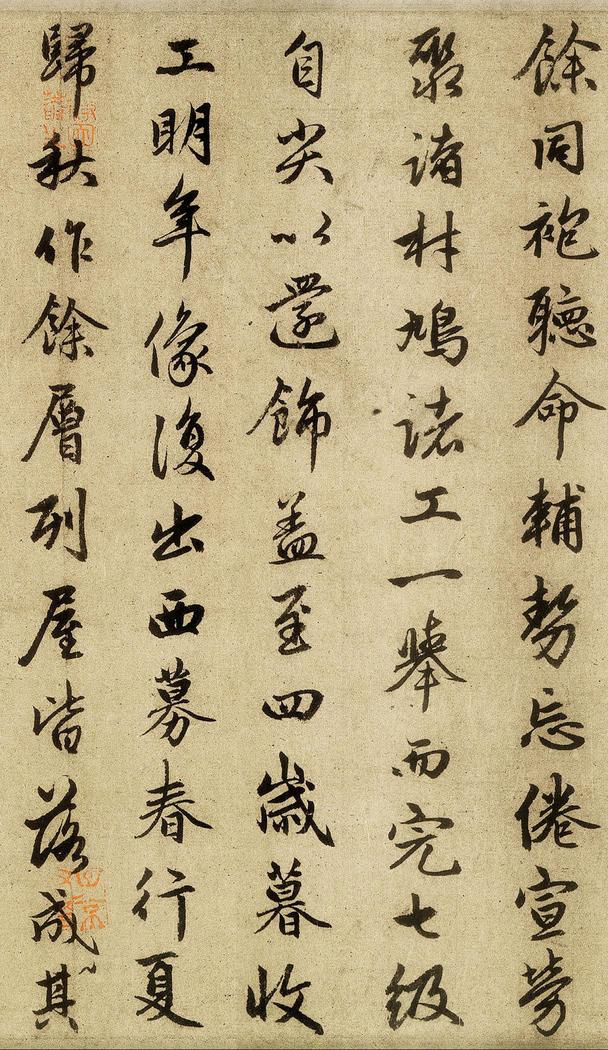 餘同袍聽命輔勢忘倦宣勞
聚諸材鳩諸工一舉而完七級
自尖以還飾盖至四歲暮收
工明年像復出西募春行夏
歸秋作餘層列屋皆落成其